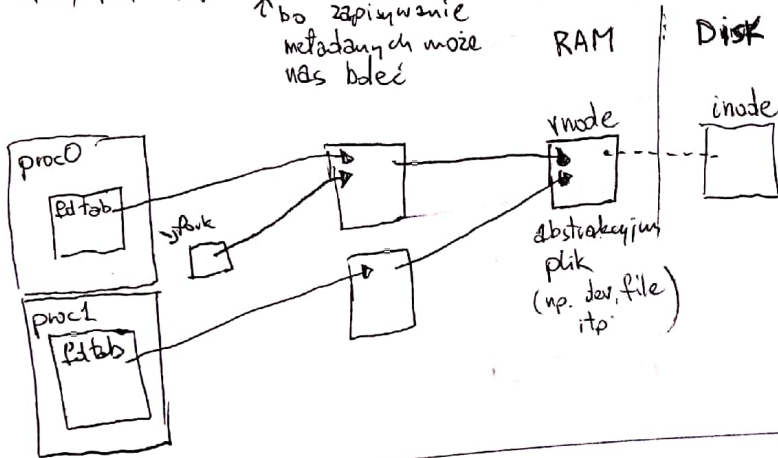 ↑ bo zapisywanie
metadanych może
nas boleć
RAM
Disk
vnode
inode
proc0
fdtab
fork
abstrakcyjny
plik
(np. dev, file
itp.)
proc1
fdtab